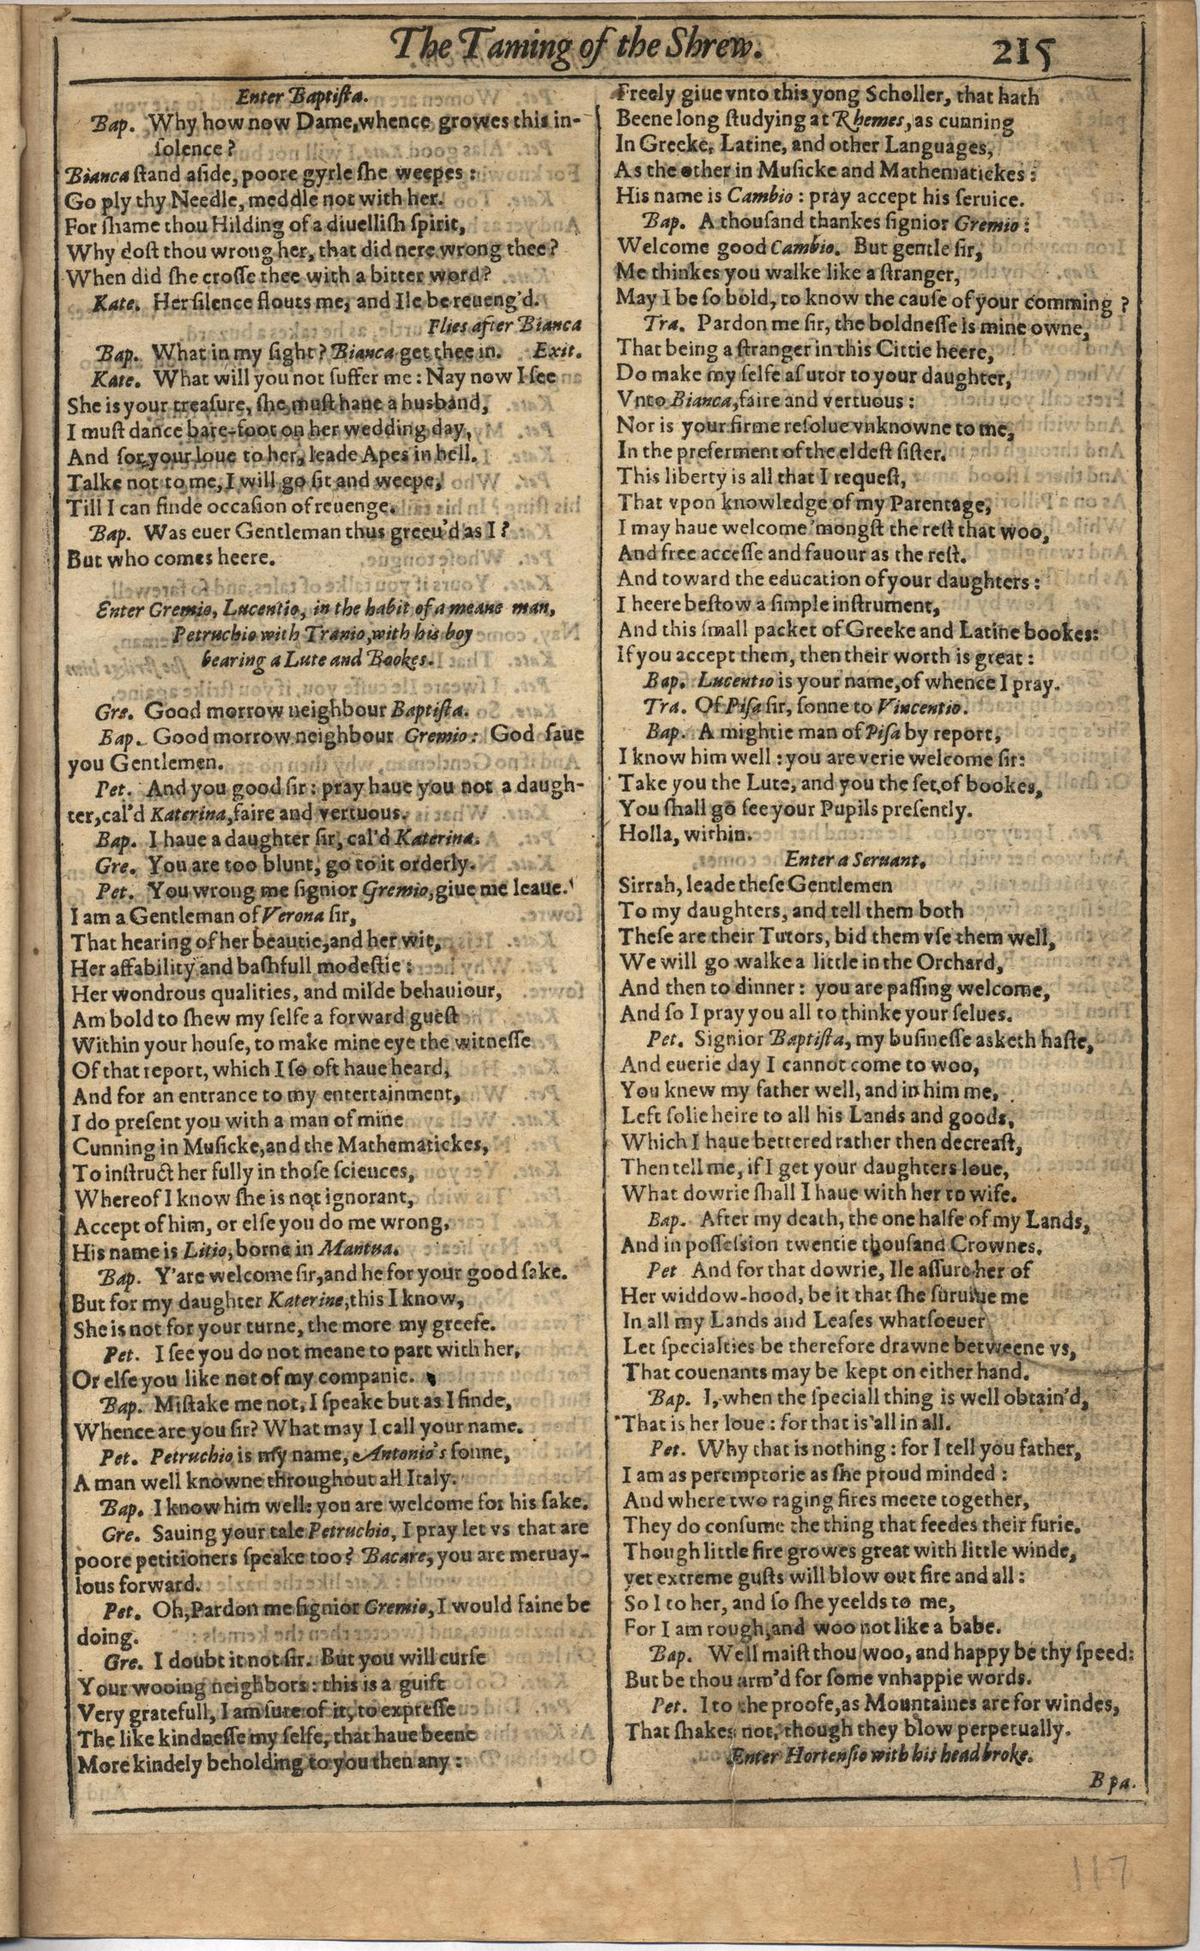 The Taming of the Shrew.
215
Enter Baptista.
Bap. Why how now Dame, whence growes this in-
solence?
Bianca stand aside, poore gyrle she weepes:
Go ply thy Needle, meddle not with her.
For shame thou Hilding of a diuellish spirit,
Why dost thou wrong her, that did nere wrong thee?
When did she crosse thee with a bitter word?
Kate. Her silence flouts me, and Ile be reueng'd.
Flies after Bianca
Bap. What in my sight? Bianca get thee in. Exit.
Kate. What will you not suffer me: Nay now I see
She is your treasure, she must haue a husband,
I must dance bare-foot on her wedding day,
And for your loue to her, leade Apes in hell.
Talke not to me, I will go sit and weepe,
Till I can finde occasion of reuenge.
Bap. Was euer Gentleman thus greeu'd as I?
But who comes heere.
Enter Gremio, Lucentio, in the habit of a meane man,
Petruchio with Tranio, with his boy
bearing a Lute and Bookes.
Gre. Good morrow neighbour Baptista.
Bap. Good morrow neighbour Gremio: God saue
you Gentlemen.
Pet. And you good sir: pray haue you not a daugh-
ter, cal'd Katerina, faire and vertuous.
Bap. I haue a daughter sir, cal'd Katerina.
Gre. You are too blunt, go to it orderly.
Pet. You wrong me signior Gremio, giue me leaue.
I am a Gentleman of Verona sir,
That hearing of her beautie, and her wit,
Her affability and bashfull modestie:
Her wondrous qualities, and milde behauiour,
Am bold to shew my selfe a forward guest
Within your house, to make mine eye the witnesse
Of that report, which I so oft haue heard,
And for an entrance to my entertainment,
I do present you with a man of mine
Cunning in Musicke, and the Mathematickes,
To instruct her fully in those sciences,
Whereof I know she is not ignorant,
Accept of him, or else you do me wrong,
His name is Litio, borne in Mantua.
Bap. Y'are welcome sir, and he for your good sake.
But for my daughter Katerine, this I know,
She is not for your turne, the more my greefe.
Pet. I see you do not meane to part with her,
Or else you like not of my companie.
Bap. Mistake me not, I speake but as I finde,
Whence are you sir? What may I call your name.
Pet. Petruchio is my name, Antonio's sonne,
A man well knowne throughout all Italy.
Bap. I know him well: you are welcome for his sake.
Gre. Sauing your tale Petruchio, I pray let vs that are
poore petitioners speake too? Bacare, you are meruay-
lous forward.
Pet. Oh, Pardon me signior Gremio, I would faine be
doing.
Gre. I doubt it not sir. But you will curse
Your wooing neighbors: this is a guift
Very gratefull, I am sure of it, to expresse
The like kindnesse my selfe, that haue beene
More kindely beholding to you then any:
Freely giue vnto this yong Scholler, that hath
Beene long studying at Rhemes, as cunning
In Greeke, Latine, and other Languages,
As the other in Musicke and Mathematickes:
His name is Cambio: pray accept his seruice.
Bap. A thousand thankes signior Gremio:
Welcome good Cambio. But gentle sir,
Me thinkes you walke like a stranger,
May I be so bold, to know the cause of your comming?
Tra. Pardon me sir, the boldnesse is mine owne,
That being a stranger in this Cittie heere,
Do make my selfe a sutor to your daughter,
Vnto Bianca, faire and vertuous:
Nor is your firme resolue vnknowne to me,
In the preferment of the eldest sister.
This liberty is all that I request,
That vpon knowledge of my Parentage,
I may haue welcome 'mongst the rest that woo,
And free accesse and fauour as the rest.
And toward the education of your daughters:
I heere bestow a simple instrument,
And this small packet of Greeke and Latine bookes:
If you accept them, then their worth is great:
Bap. Lucentio is your name, of whence I pray.
Tra. Of Pisa sir, sonne to Vincentio.
Bap. A mightie man of Pisa by report,
I know him well: you are verie welcome sir:
Take you the Lute, and you the set of bookes,
You shall go see your Pupils presently.
Holla, within.
Enter a Seruant.
Sirrah, leade these Gentlemen
To my daughters, and tell them both
These are their Tutors, bid them vse them well,
We will go walke a little in the Orchard,
And then to dinner: you are passing welcome,
And so I pray you all to thinke your selues.
Pet. Signior Baptista, my businesse asketh haste,
And euerie day I cannot come to woo,
You knew my father well, and in him me,
Left solie heire to all his Lands and goods,
Which I haue bettered rather then decreast,
Then tell me, if I get your daughters loue,
What dowrie shall I haue with her to wife.
Bap. After my death, the one halfe of my Lands,
And in possession twentie thousand Crownes.
Pet And for that dowrie, Ile assure her of
Her widdow-hood, be it that she suruiue me
In all my Lands and Leases whatsoeuer,
Let specialties be therefore drawne betweene vs,
That couenants may be kept on either hand.
Bap. I, when the speciall thing is well obtain'd,
That is her loue: for that is all in all.
Pet. Why that is nothing: for I tell you father,
I am as peremptorie as she proud minded:
And where two raging fires meete together,
They do consume the thing that feedes their furie.
Though little fire growes great with little winde,
yet extreme gusts will blow out fire and all:
So I to her, and so she yeelds to me,
For I am rough, and woo not like a babe.
Bap. Well maist thou woo, and happy be thy speed:
But be thou arm'd for some vnhappie words.
Pet. I to the proofe, as Mountaines are for windes,
That shakes not, though they blow perpetually.
Enter Hortensio with his head broke.
Bpa.
117